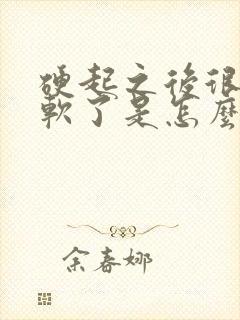 硬起之後很
軟了是怎麼
余春娜